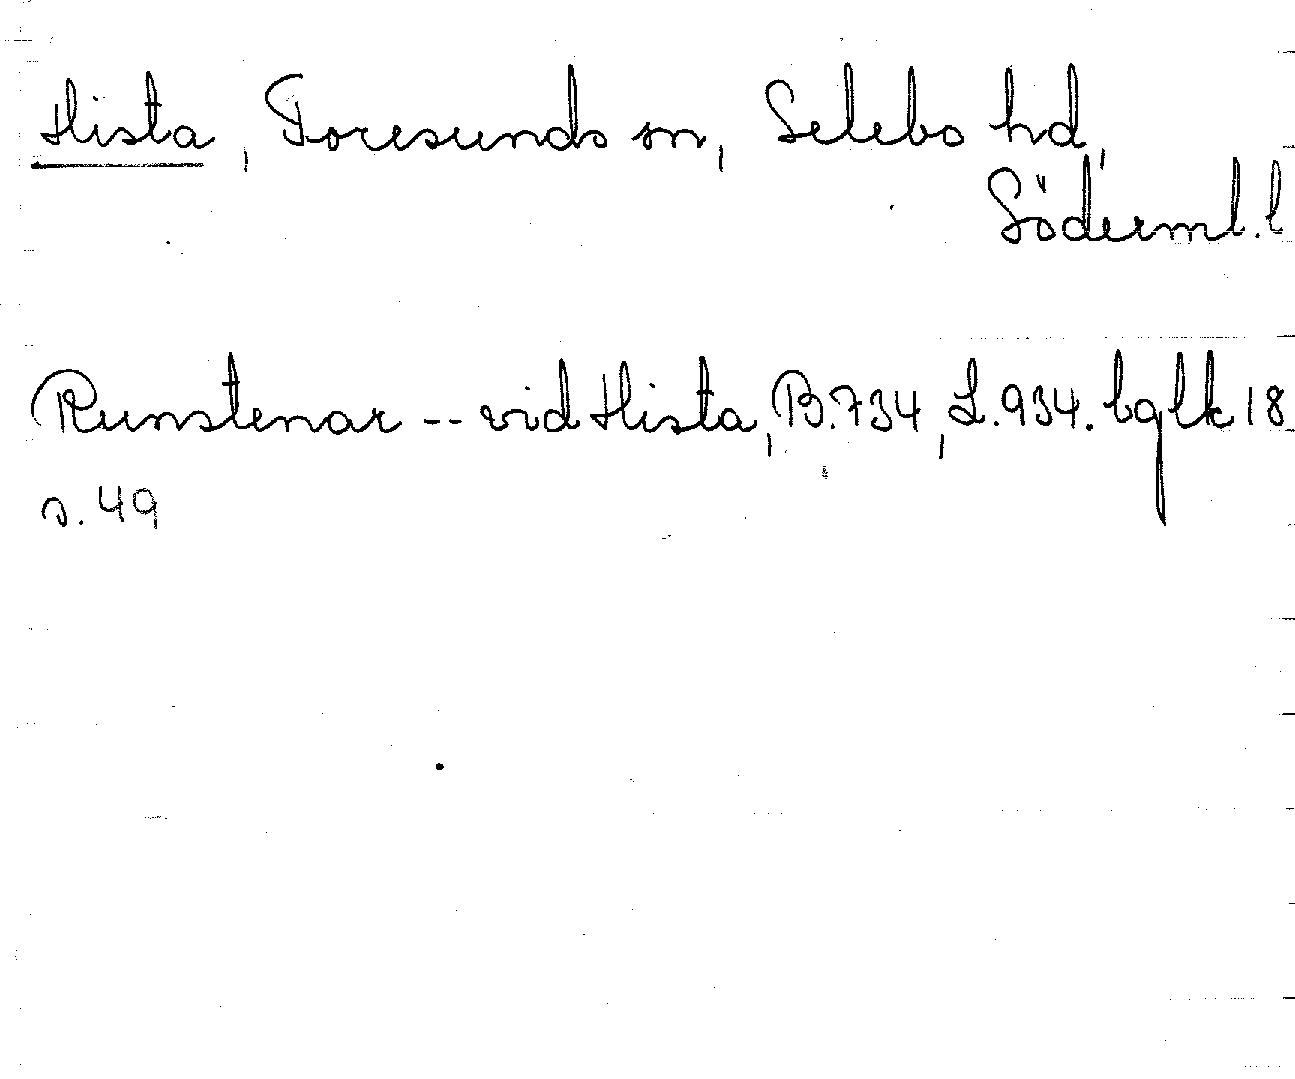 Hista, Toresunds sn, Selebo hd,
Söderml. l
Runstenar -- vid Hista, B.734, L.934. bqlk 18
s. 49